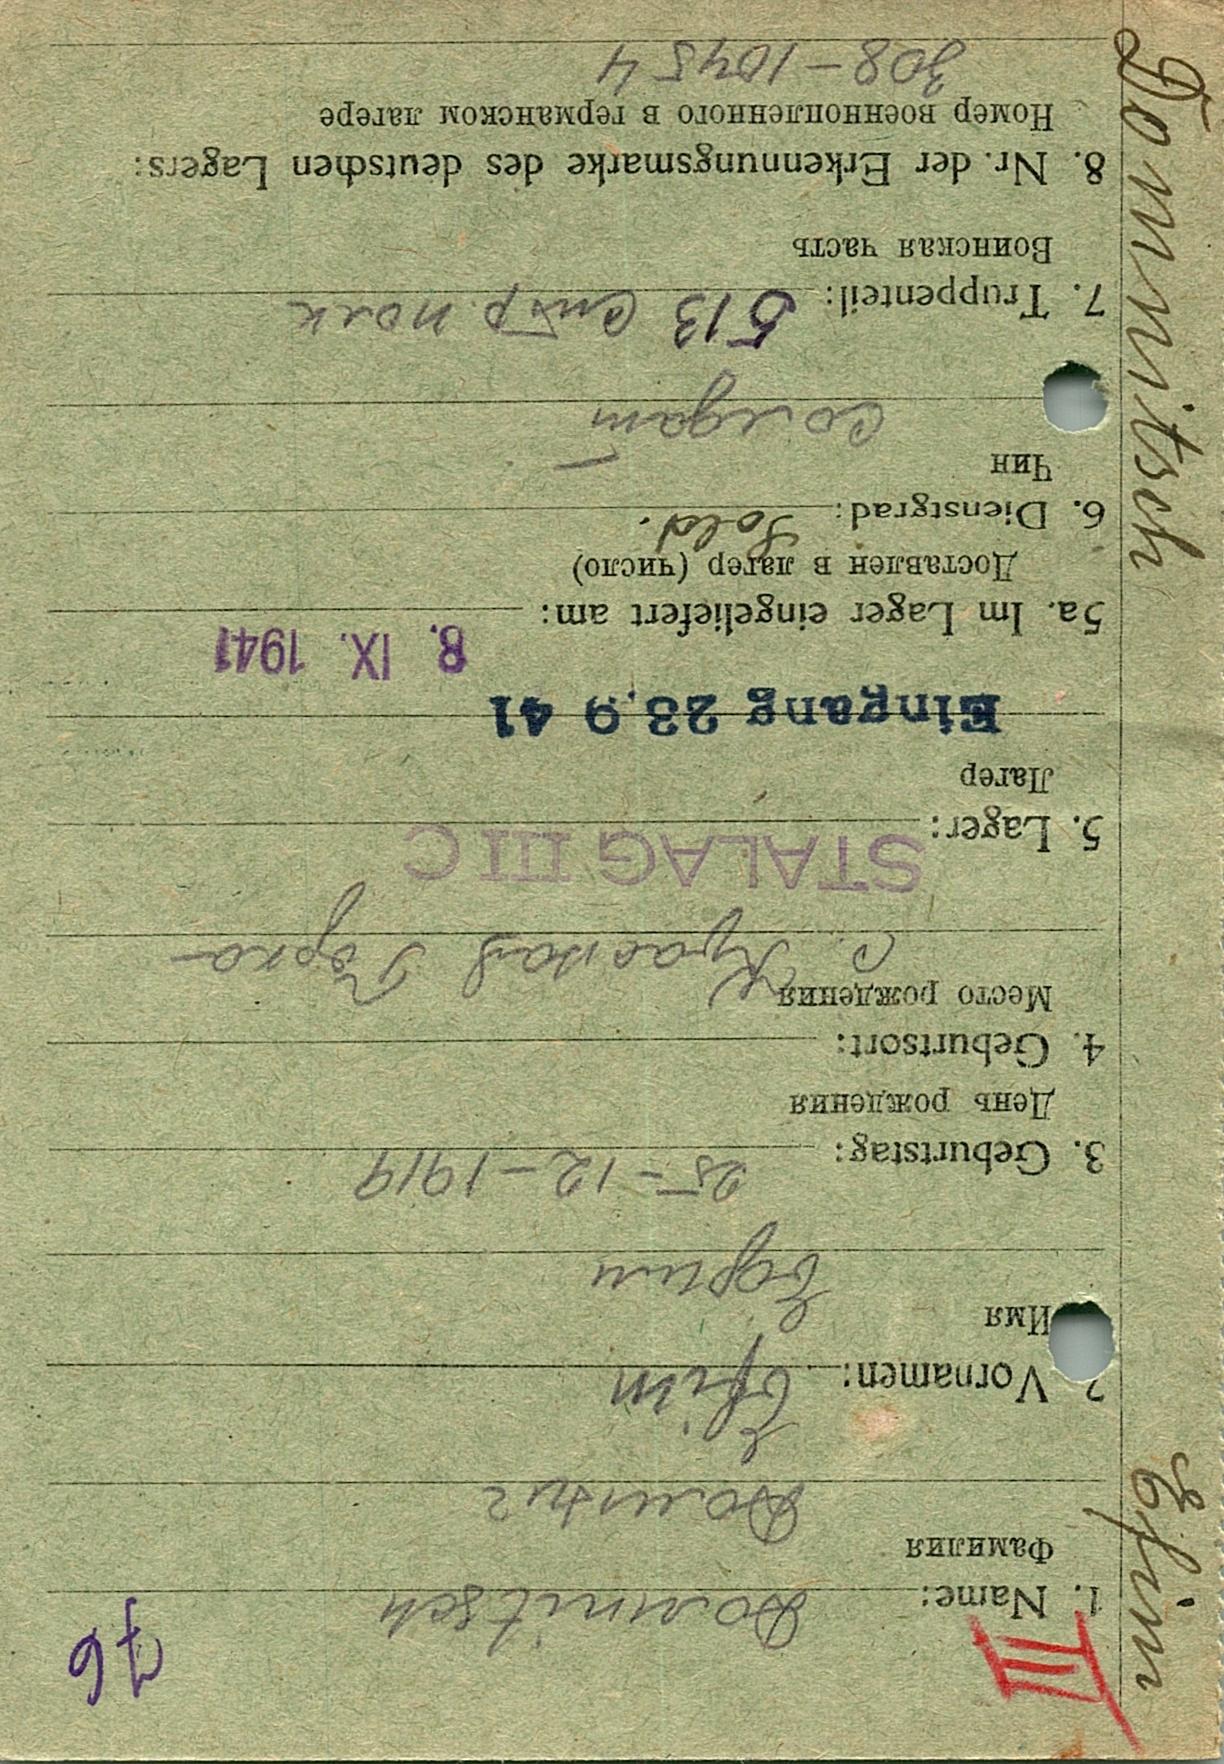 76
III
1. Name: Domnitsch
Фамилия
Домнич
2. Vornamen: Efim
Имя
Ефим
3. Geburtstag:
25-12-1919
День рождения
4. Geburtsort:
Место рождения
с. Красная Горка
5. Lager: STALAG III C
Лагер
Eingang 23.9 41
8. IX. 1941
5a. Im Lager eingeliefert am:
Доставлен в лагер (число)
6. Dienstgrad: Sold.
Чин
солдат
7. Truppenteil: 513 стр. полк
Воинская часть
8. Nr. der Erkennungsmarke des deutschen Lagers:
Номер военнопленного в германском лагере
308-10454
Efim Domnitsch